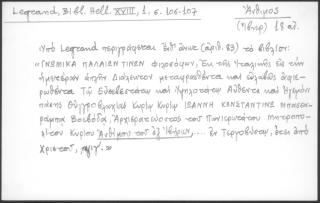 Legrand, Bibl. Hell. XVIII, 1, σ. 106-107
Ἄνθιμος
(Ἴβηρ) 18 αἰ.
Ὑπὸ Legrand περιγράφεται ἐνθ' ἄνω (ἀριθ. 83) τὸ βιβλίον:
"ΓΝΩΜΙΚΑ ΠΑΛΑΙΩΝ ΤΙΝΩΝ φιλοσόφων, Ἐκ τῆς Ἰταλικῆς εἰς τὴν
ἡμετέραν ἁπλῆν Διάλεκτον μεταφρασθέντα καὶ εὐλαβῶς ἀφιε-
ρωθέντα Τῷ Εὐσεβεστάτῳ καὶ Ὑψηλοτάτῳ Αὐθέντῃ καὶ Ἡγεμόνι
πάσης Οὐγγροβλαχίας Κυρίῳ Κυρίῳ ΙΩΑΝΝΗ ΚΩΝΣΤΑΝΤΙΝΩ ΜΠΑΣΣΑ-
ράμπᾳ Βοεβόδᾳ, Ἀρχιερατεύοντος τοῦ Πανιερωτάτου Μητροπο-
λίτου Κυρίου Ἀνθίμου τοῦ ἐξ Ἰβήρων, ... Ἐν Τεργοβύστῳ, ἔτει ἀπὸ
Χριστοῦ, ‚αψιγʹ. »